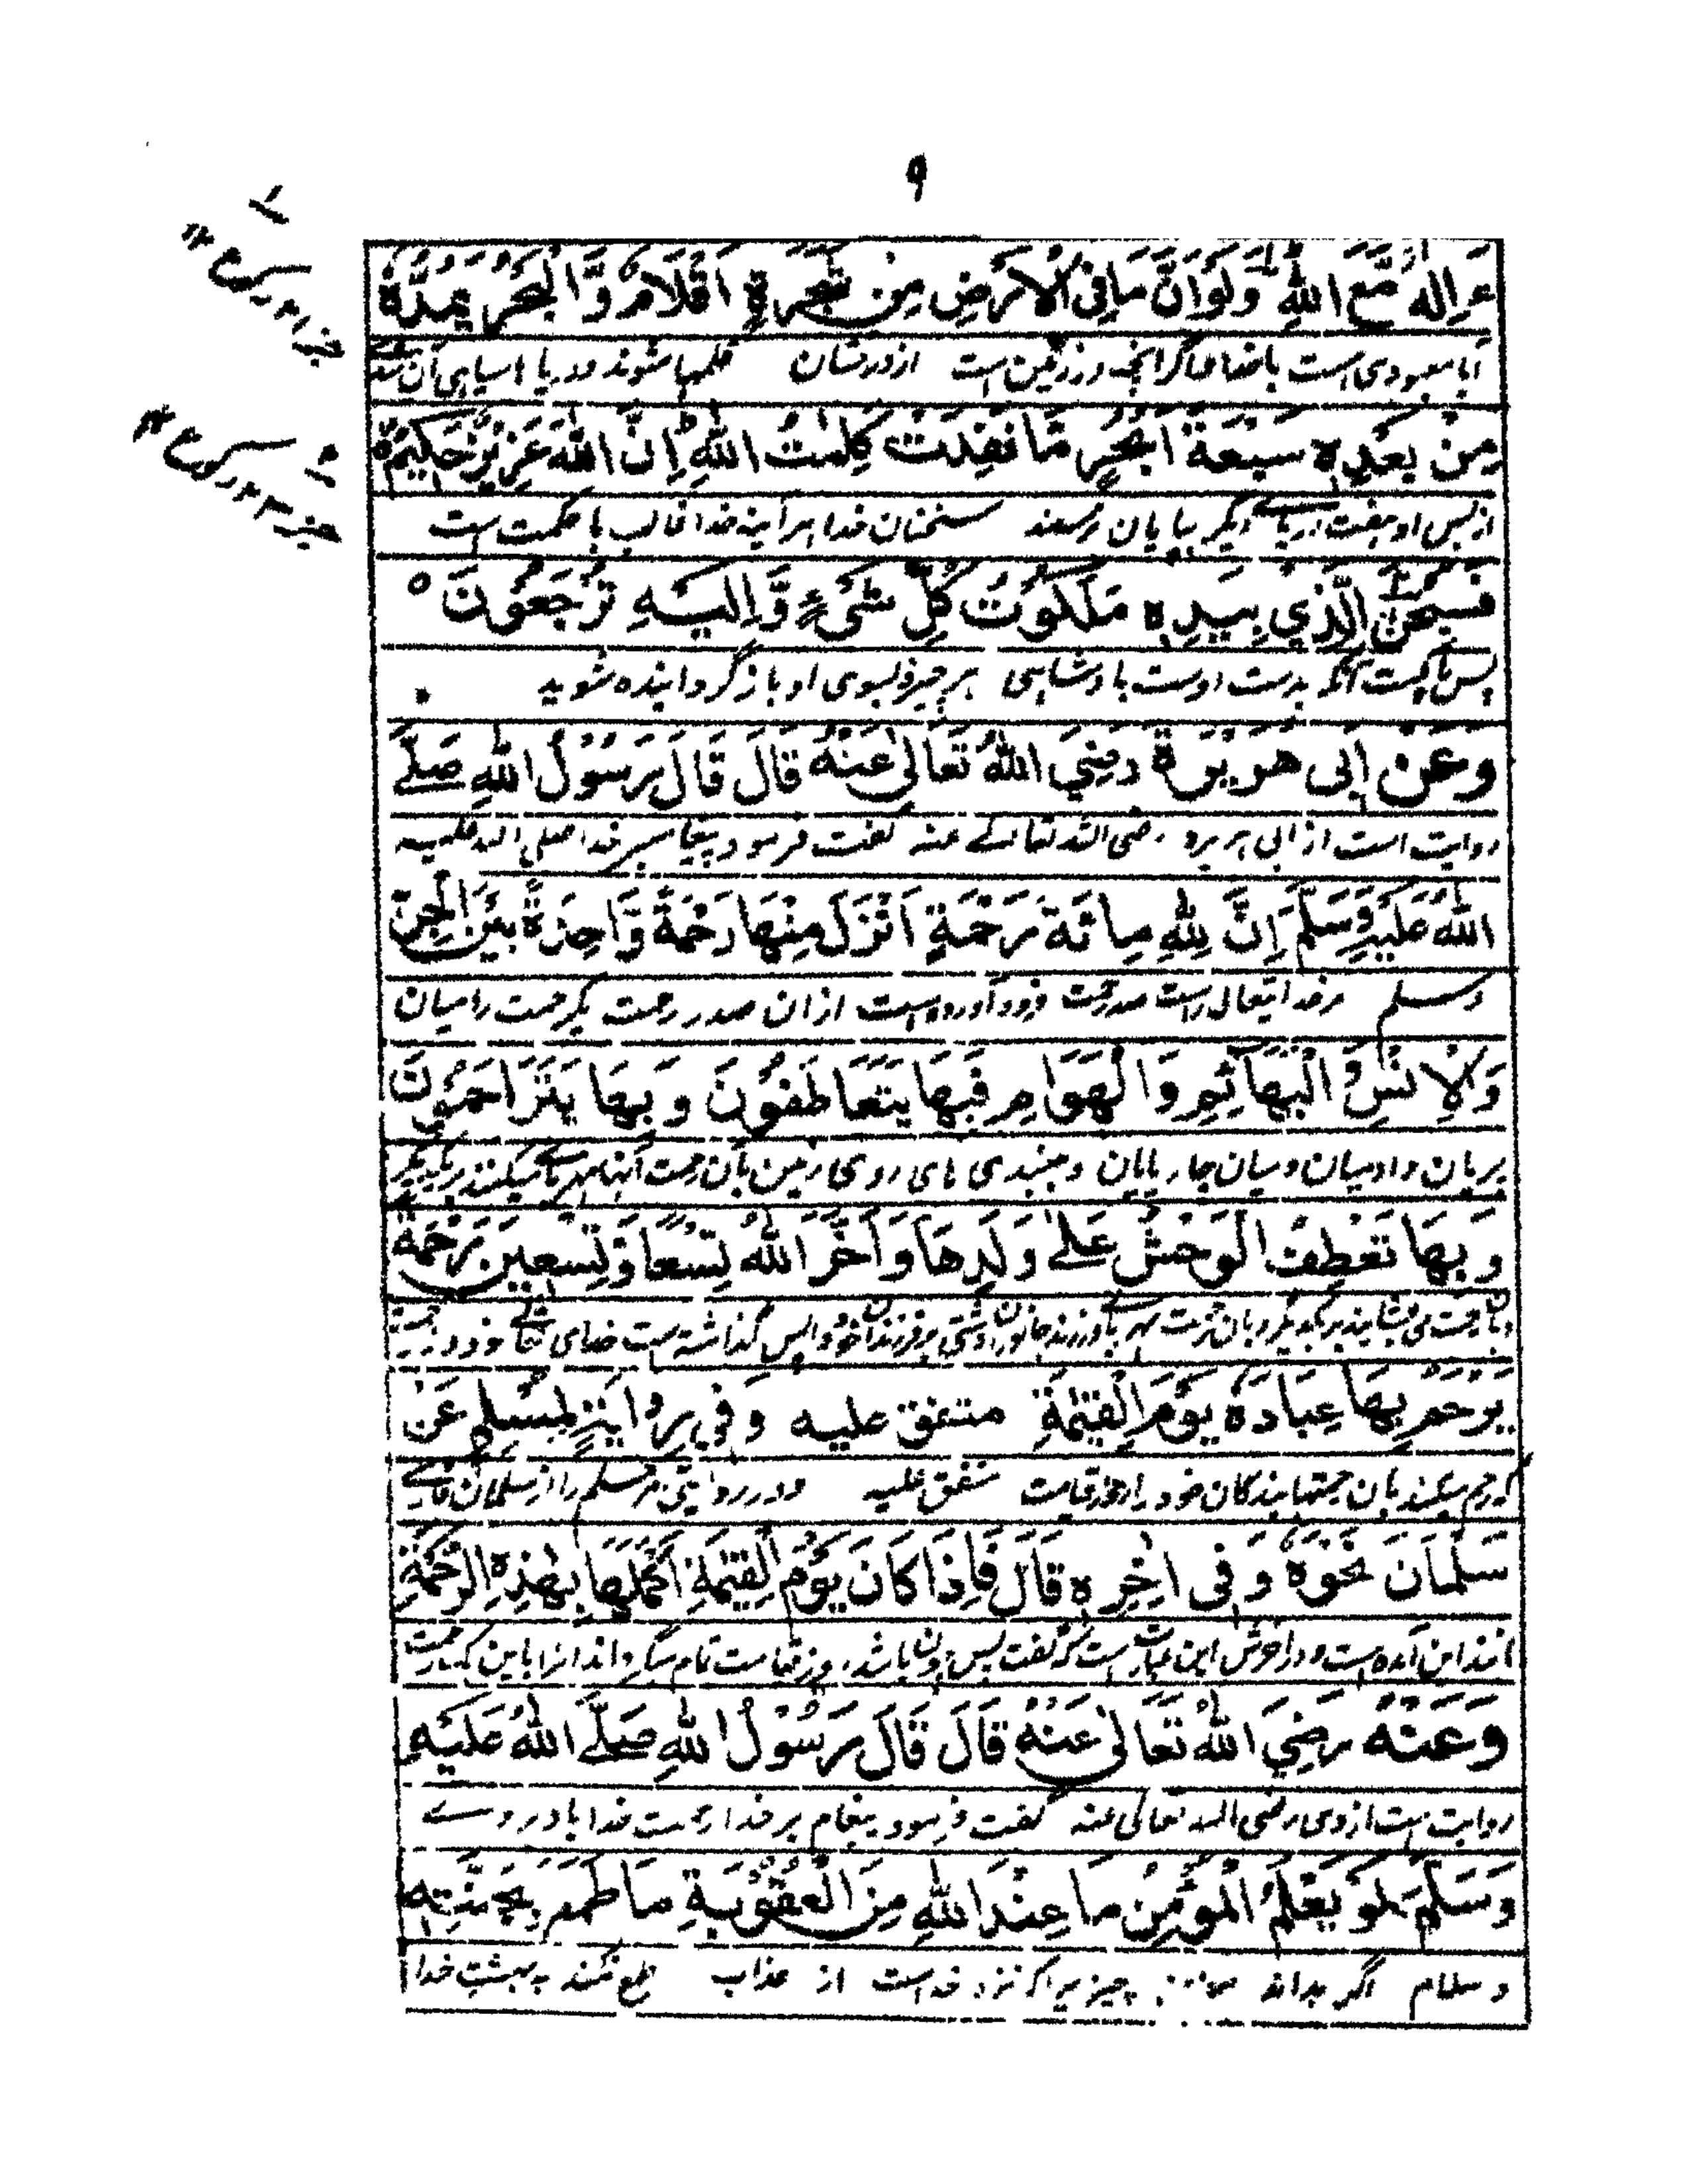 ۹
ءَاِلٰهٌ مَّعَ اللهِ وَلَوْ اَنَّ مَا فِی الْاَرْضِ مِنْ شَجَرَةٍ اَقْلَامٌ وَّالْبَحْرُ یَمُدُّهٗ
آیا معبودی است با خدای اگر آنچه در زمین است از درختان قلمها شوند و دریا سیاهی آن
مِنْ بَعْدِهٖ سَبْعَةُ اَبْحُرٍ مَّا نَفِدَتْ كَلِمٰتُ اللهِ اِنَّ اللهَ عَزِیْزٌ حَكِیْمٌ
از پس او هفت دریای دیگر بپایان نرسند سخنان خدا هر آینه خدا غالب با حکمت است
فَسُبْحٰنَ الَّذِیْ بِیَدِهٖ مَلَكُوْتُ كُلِّ شَیْءٍ وَّاِلَیْهِ تُرْجَعُوْنَ ○
پس پاکیست آنکه بدست اوست بادشاهی هر چیز و بسوی او باز گردانیده شوید
وَعَنْ اَبِی هُرَیْرَةَ رَضِیَ اللهُ تَعَالٰی عَنْهُ قَالَ قَالَ رَسُوْلُ اللهِ صَلَّی
روایت است از ابی هریره رضی الله تعالے عنه گفت فرمود پیغامبر خدا صلی الله علیه
اللهُ عَلَیْهِ وَسَلَّمَ اِنَّ لِلّٰهِ مِائَةَ رَحْمَةٍ اَنْزَلَ مِنْهَا رَحْمَةً وَّاحِدَةً بَیْنَ الْجِنِّ
وسلم مر خدایتعالی راست صد رحمت فرود آورده است از ان صد رحمت یک رحمت را میان
وَالْاِنْسِ وَ الْبَهَائِمِ وَالْهَوَامِّ فَبِهَا یَتَعَاطَفُوْنَ وَبِهَا یَتَرَاحَمُوْنَ
پریان و ادمیان و میان چارپایان و جنبندی های روی زمین بآن رحمت میکنند بر یکدیگر
وَبِهَا تَعْطِفُ الْوَحْشُ عَلٰی وَلَدِهَا وَاَخَّرَ اللهُ تِسْعًا وَّتِسْعِیْنَ رَحْمَةً
بر یکدیگر و بان رحمت بر فرزندان خود و واپس گذاشته است خدای
یَرْحَمُ بِهَا عِبَادَهٗ یَوْمَ الْقِیٰمَةِ متفق علیه وَفِیْ رِوَایَةٍ لِّمُسْلِمٍ عَنْ
که رحم میکند بان رحمتها بندگان خود را روز قیامت متفق علیه و در روایتی مر مسلم را از سلمان فارسے
سَلْمَانَ نَحْوَهٗ وَفِی اٰخِرِهٖ قَالَ فَاِذَا كَانَ یَوْمُ الْقِیٰمَةِ اَكْمَلَهَا بِهٰذِهِ الرَّحْمَةِ
مانند این آمده است و در آخرش این عبارت است که گفت پس چون باشد روز قیامت تمام میگرداند آنرا باین رحمت
وَعَنْهُ رَضِیَ اللهُ تَعَالٰی عَنْهُ قَالَ قَالَ رَسُوْلُ اللهِ صَلَّی اللهُ عَلَیْهِ
روایت است از وی رضی الله تعالی عنه گفت فرمود پیغامبر خدا رحمت خدا باد بر وے
وَسَلَّمَ لَوْ یَعْلَمُ الْمُؤْمِنُ مَا عِنْدَ اللهِ مِنَ الْعُقُوْبَةِ مَا طَمَعَ بِجَنَّتِهٖ
و سلام اگر بداند چیزیرا که نزد خداست از عذاب طمع نکند به بهشت خدا